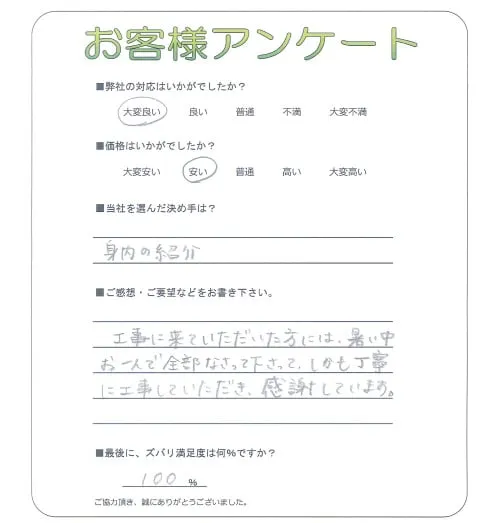 お客様アンケート
■弊社の対応はいかがでしたか？
大変良い 良い 普通 不満 大変不満
■価格はいかがでしたか？
大変安い 安い 普通 高い 大変高い
■当社を選んだ決め手は？
身内の紹介
■ご感想・ご要望などをお書き下さい。
工事に来ていただいた方には、暑い中
お一人で全部なさって下さって、しかも丁寧
に工事していただき、感謝しています。
■最後に、ズバリ満足度は何％ですか？
100 ％
ご協力頂き、誠にありがとうございました。